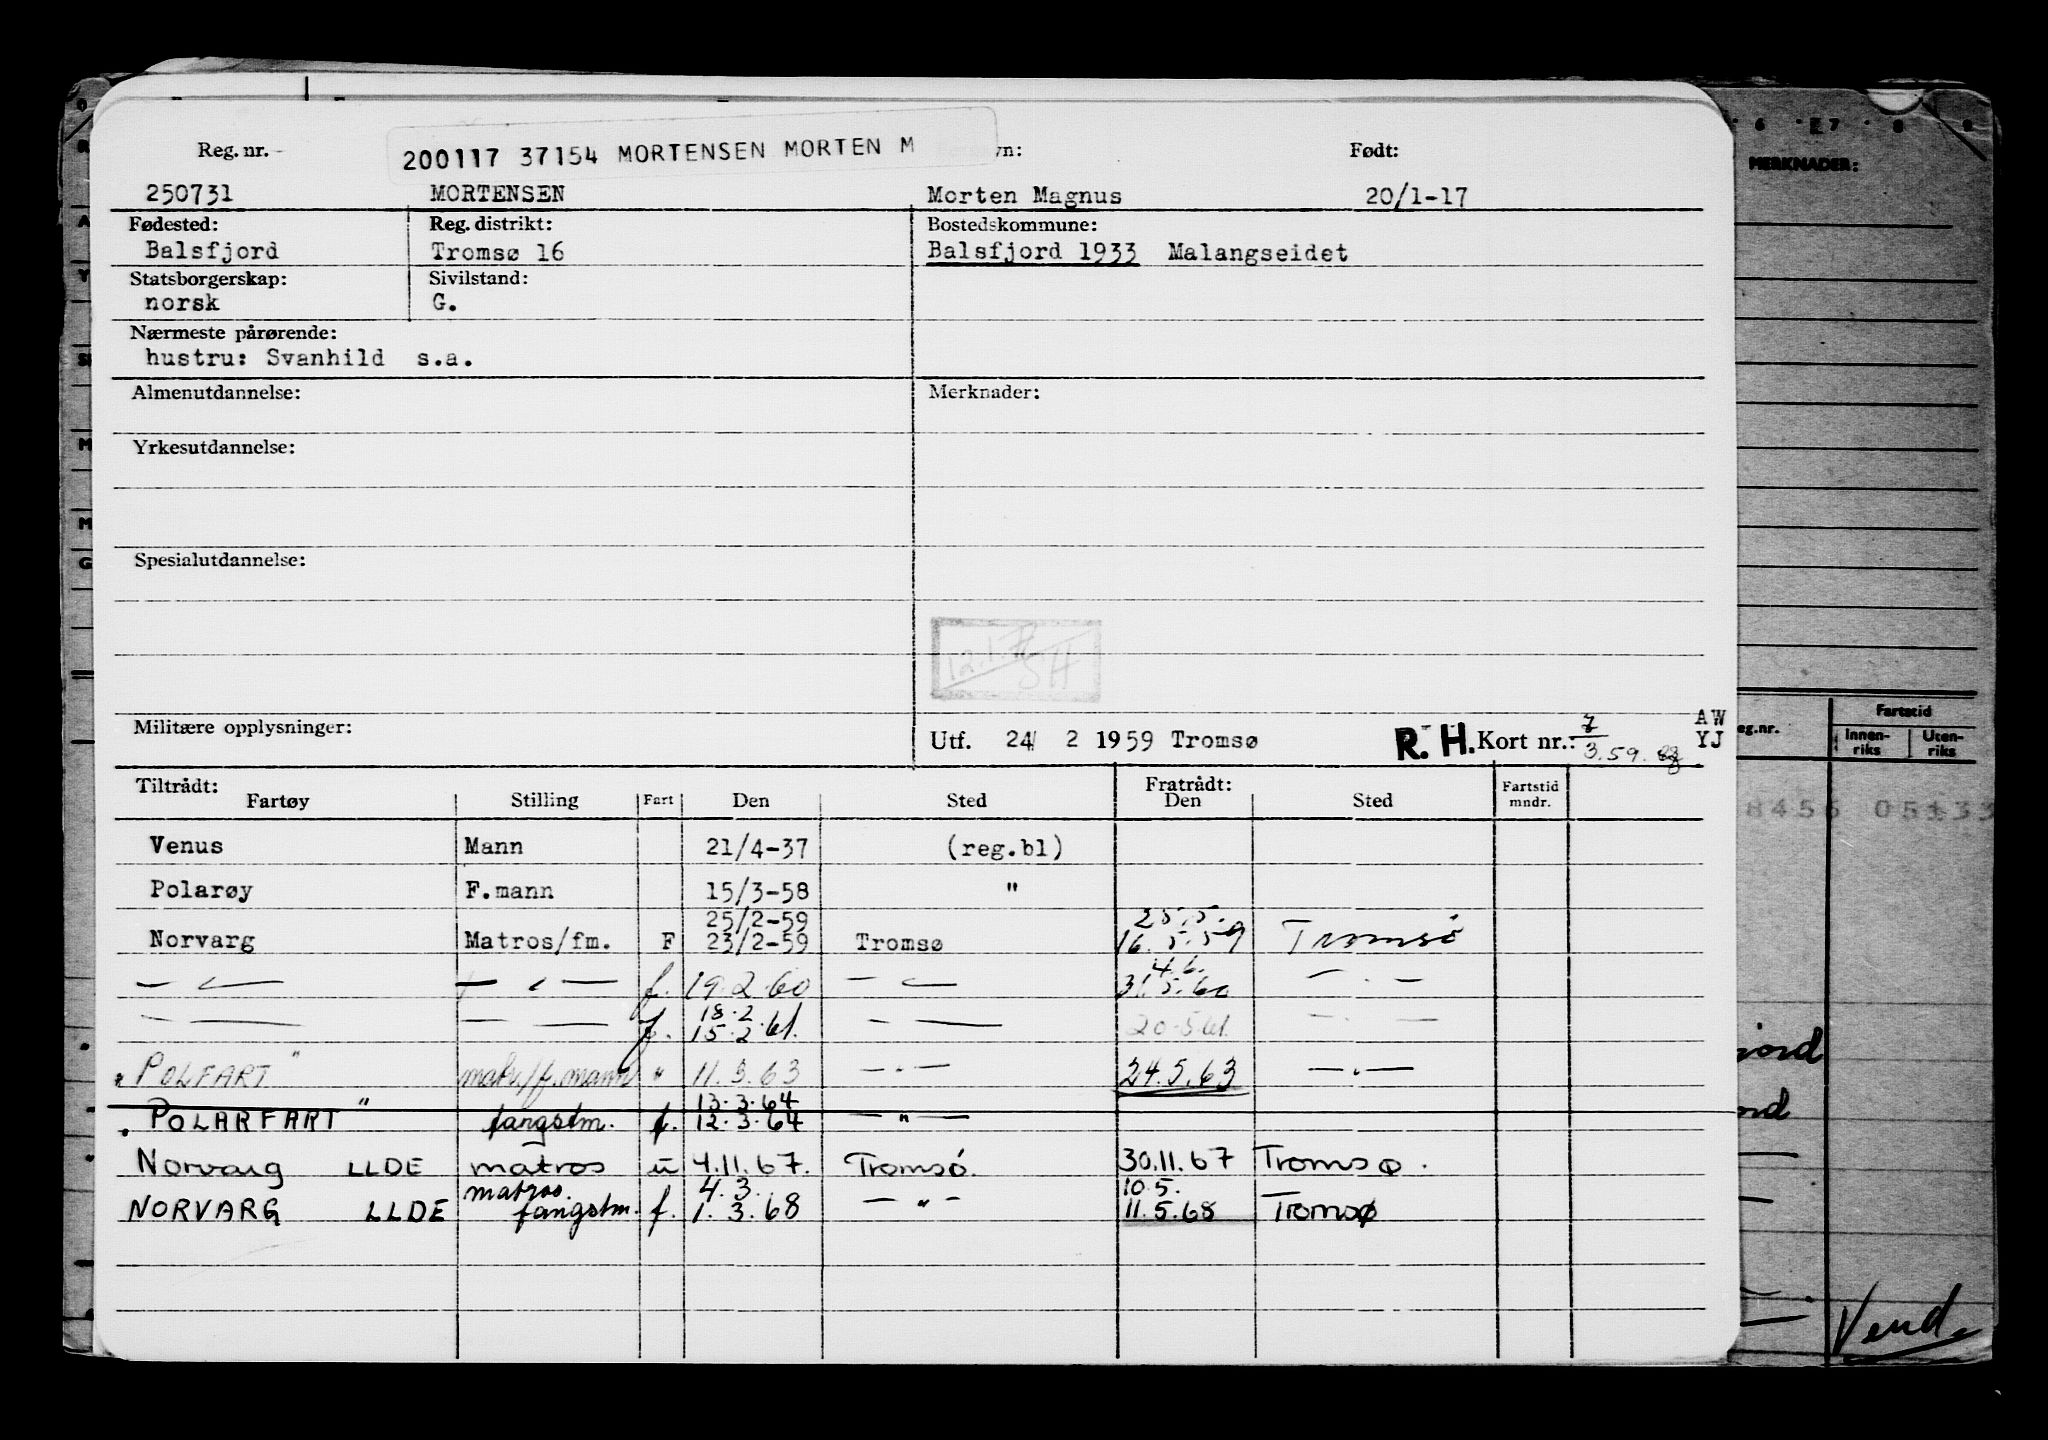 Reg. nr.
200117 37154 MORTENSEN MORTEN M
vn:
Født:
MERKNADER:
250731 MORTENSEN Morten Magnus 20/1-17
Fødested: Reg. distrikt: Bostedskommune:
Balsfjord Tromsø 16 Balsfjord 1933 Malangseidet
Statsborgerskap: Sivilstand:
norsk G.
Nærmeste pårørende:
hustru: Svanhild s.a.
Almenutdannelse: Merknader:
Yrkesutdannelse:
Spesialutdannelse:
SH
Militære opplysninger:
Utf. 24/ 2 1959 Tromsø R. H. Kort nr.:
AW
YJ
eg.nr. Fartstid
Innen-riks Uten-riks
Tiltrådt: Fratrådt:
Fartøy Stilling Fart Den Sted Den Sted Fartstid mndr.
8456 05133
Venus Mann 21/4-37 (reg.bl)
Polarøy F.mann 15/3-58 "
25/2-59 25.5.
Norvarg Matros/fm. F 23/2-59 Tromsø 16.5.59 Tromsø
4.6.
— " — — " — f. 19.2.60 — " — 31.5.60 — " —
18.2
— " — — " — f. 15.2.61. — " — 20.5.61. — " —
jord
"POLFART" matr./f.mann " 11.3.63 — " — 24.5.63 — " —
13.3.64
"POLARFART" fangstm. f. 12.3.64 — " —
Norvarg LLDE matros u 4.11.67. Tromsø. 30.11.67 Tromsø.
matros. 4.3. 10.5.
NORVARG LLDE fangstm. f. 1.3.68 — " — 11.5.68 Tromsø
Vend